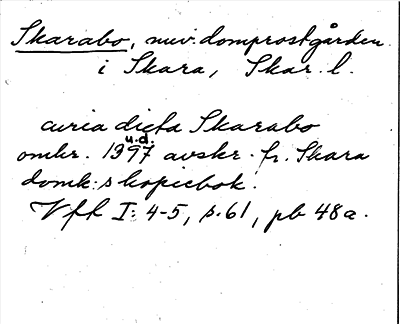 Skarabo, nuv. domprostgården
i Skara, Skar. l.
curia dicta Skarabo
u.d.
omkr. 1397 avskr. fr. Skara
domk:s kopiebok.
Vfk I: 4-5, s. 61, pb 48a.